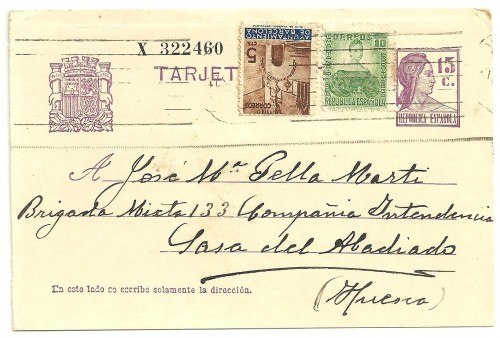 X 322460
TARJET
AYUNTAMIENTO
DE BARCELONA
5
CTS
CORREOS
CORREOS
10
REPUBLICA ESPAÑOLA
15
C.
REPUBLICA ESPAÑOLA
A José Mª Pella Marti
Brigada Mixta 133 Compañia Intendencia
Sasa del Abadiado
(Huesca)
En este lado se escribe solamente la dirección.